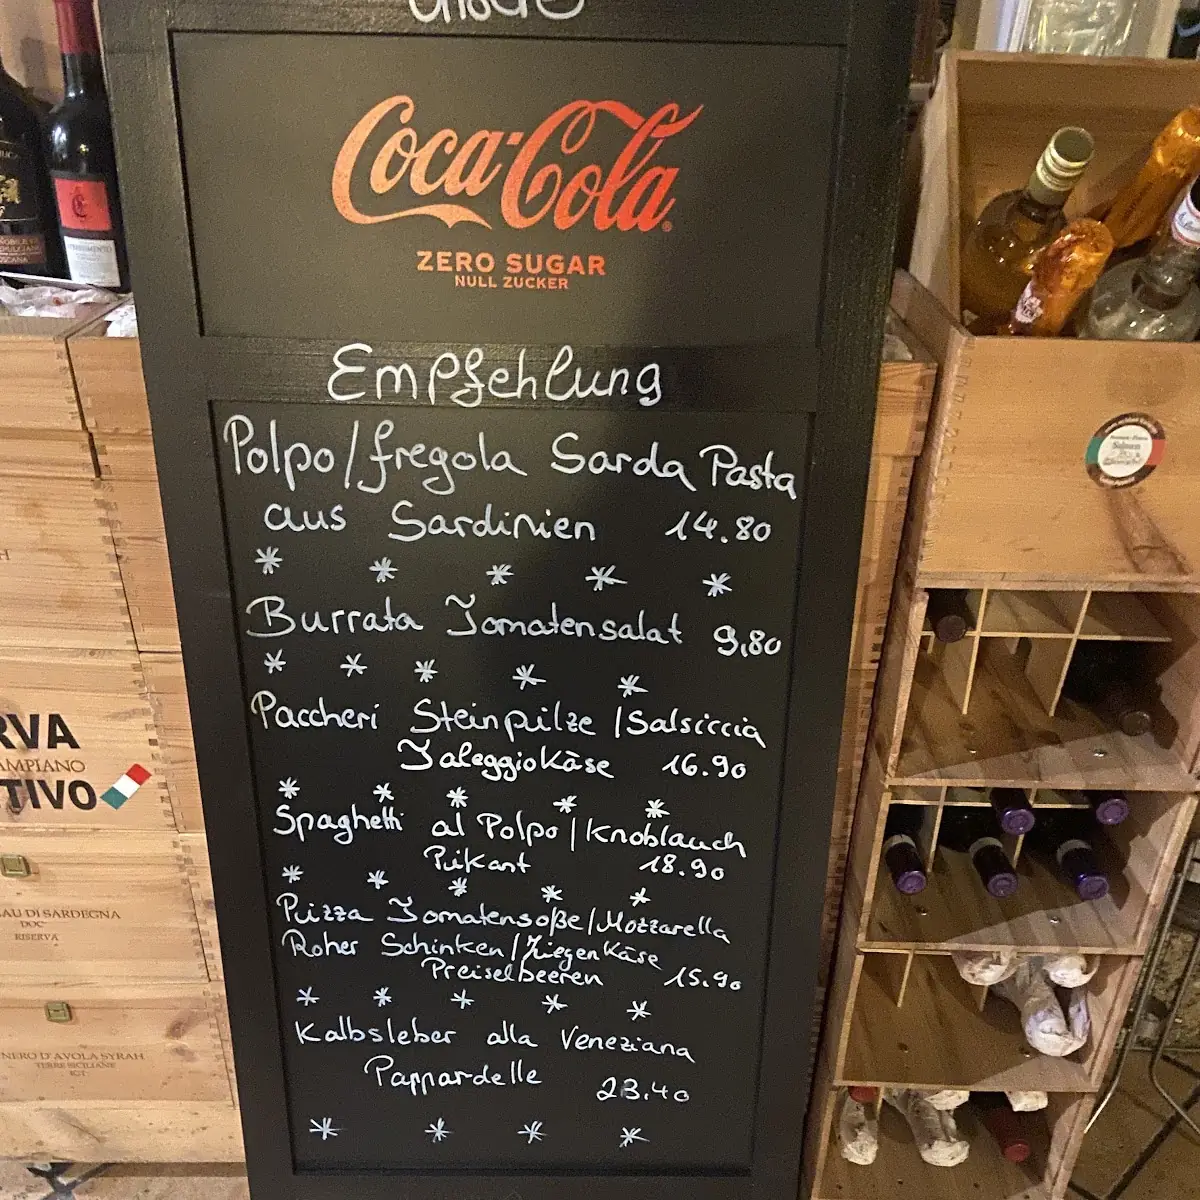 Unsere
Coca-Cola
ZERO SUGAR
NULL ZUCKER
Empfehlung
Polpo/fregola Sarda Pasta
aus Sardinien 14.80
* * * * *
Burrata Tomatensalat 9,80
* * * * *
Paccheri Steinpilze/Salsiccia
Taleggiokäse 16.90
* * * * *
Spaghetti al Polpo/Knoblauch
Pikant 18.90
* * * * *
Pizza Tomatensoße/Mozzarella
Roher Schinken/Ziegenkäse
Preiselbeeren 15.90
* * * * *
Kalbsleber alla Veneziana
Pappardelle 23.40
* * * *
RVA
AMPIANO
TIVO
AU DI SARDEGNA
DOC
RISERVA
NERO D'AVOLA SYRAH
TERRE SICILIANE
IGT